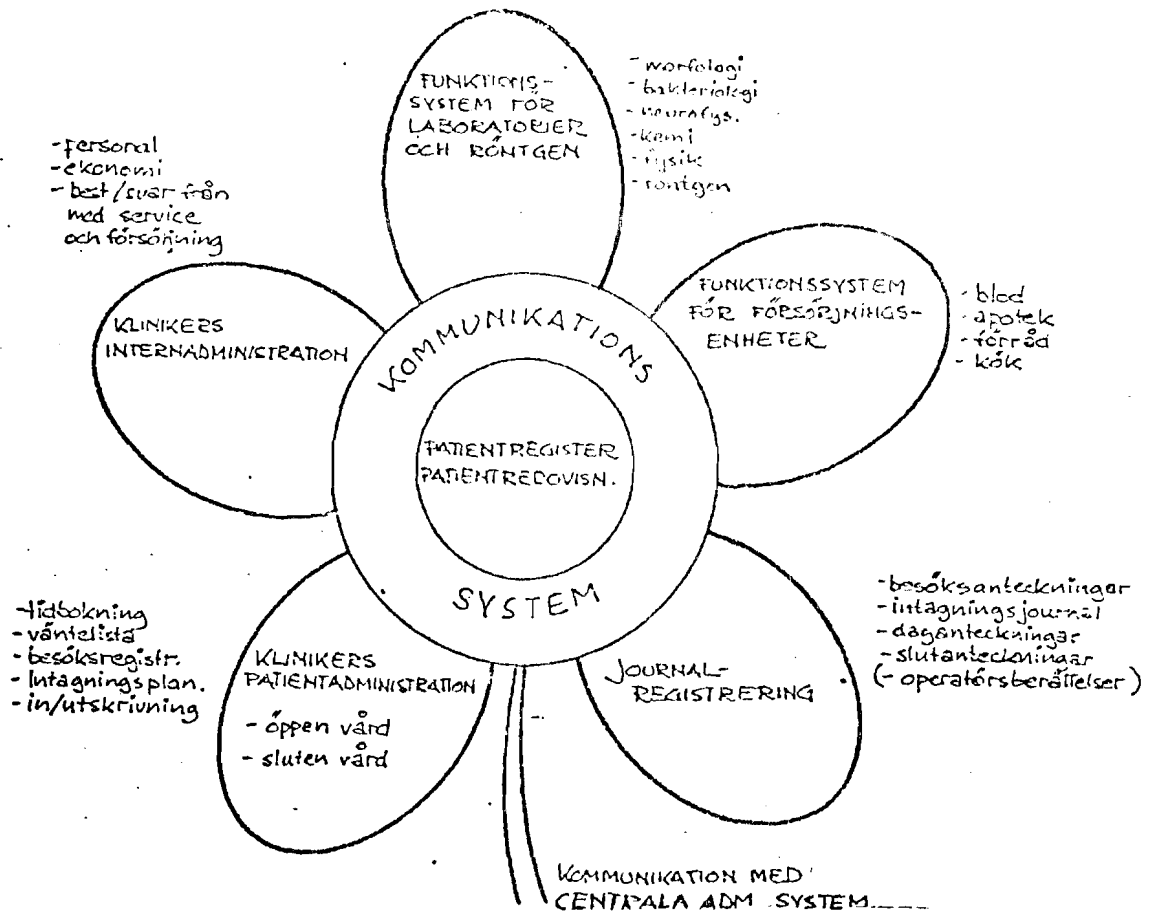 FUNKTIONS-
SYSTEM FÖR
LABORATORIER
OCH RÖNTGEN
- morfologi
- bakteriologi
- neurofys.
- kemi
- fysik
- röntgen
- personal
- ekonomi
- best/svar från
med service
och försörjning
KLINIKERS
INTERNADMINISTRATION
FUNKTIONSSYSTEM
FÖR FÖRSÖRJNINGS-
ENHETER
- blod
- apotek
- förråd
- kök
KOMMUNIKATIONS
SYSTEM
PATIENTREGISTER
PATIENTREDOVISN.
- tidbokning
- väntelista
- besöksregistr.
- Intagningsplan.
- in/utskrivning
KLINIKERS
PATIENTADMINISTRATION
- öppen vård
- sluten vård
JOURNAL-
REGISTRERING
- besöksanteckningar
- intagningsjournal
- daganteckningar
- slutanteckningar
(- operatörsberättelser)
KOMMUNIKATION MED
CENTRALA ADM SYSTEM